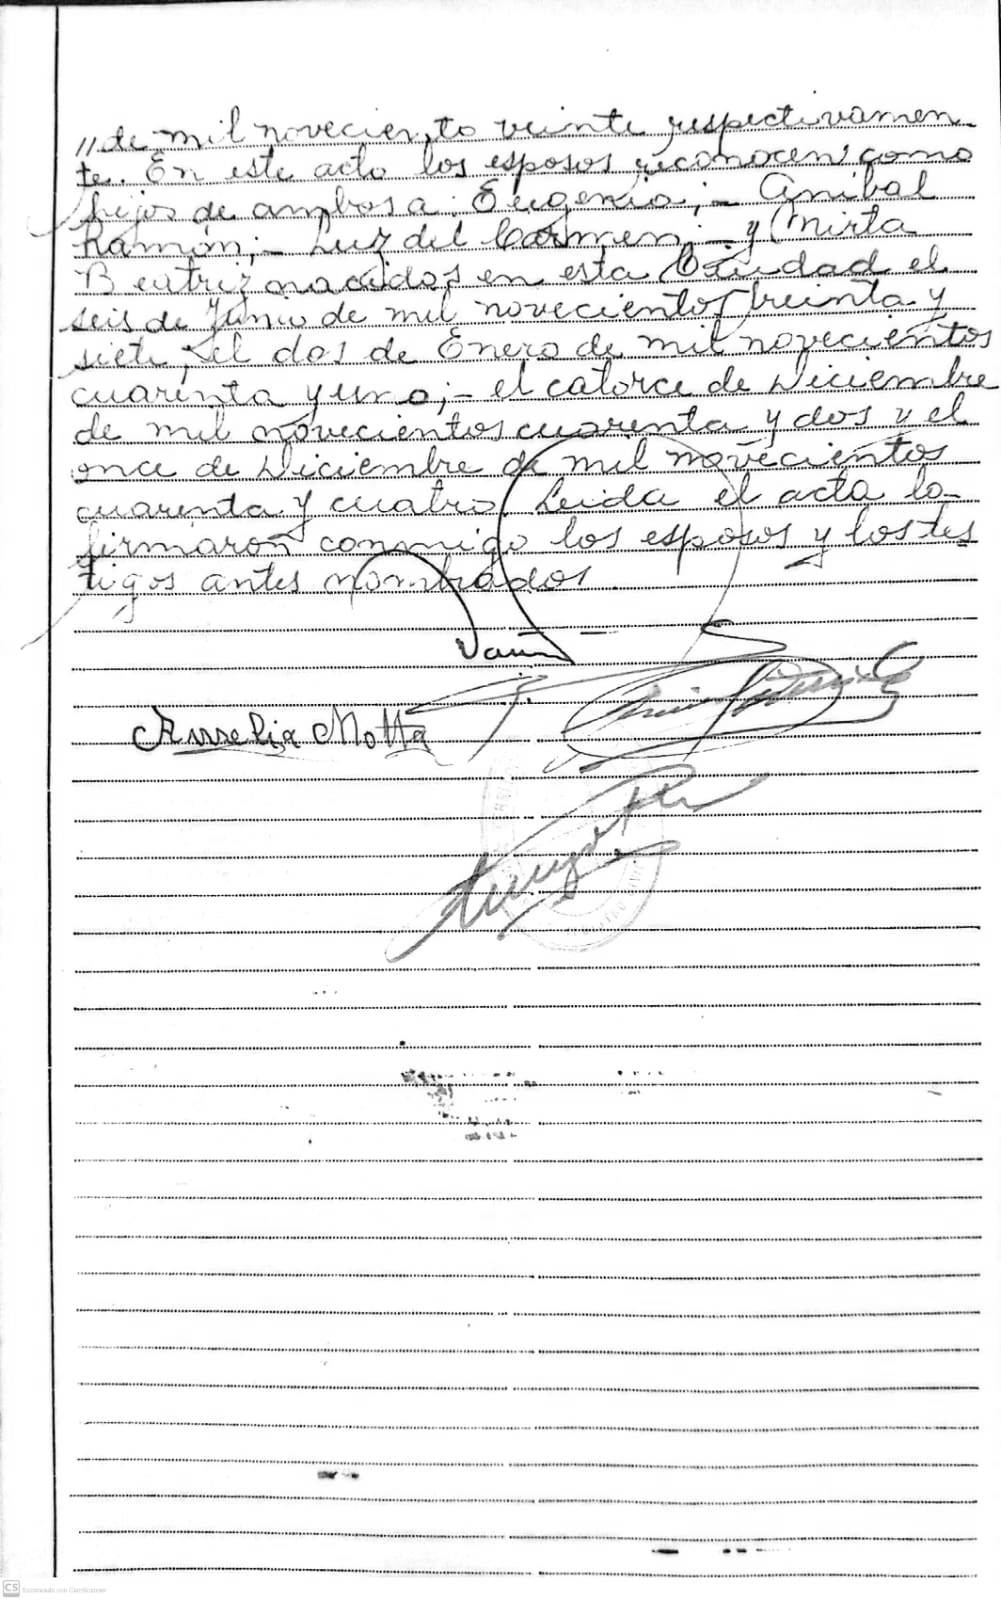 "de mil novecien to veinte respectivamen-
te. En este acto los esposos reconocen como
hijos de ambos a: Eugenio; - Anibal
Ramón; - Luz del Carmen; - y Mirta
Beatriz nacidos en esta Ciudad el
seis de Junio de mil novecientos treinta y
siete, el dos de Enero de mil novecientos
cuarenta y uno; - el catorce de Diciembre
de mil novecientos cuarenta y dos y el
once de Diciembre de mil novecientos
cuarenta y cuatro Leida el acta la
firmaron conmigo los esposos y los tes
tigos antes nombrados
Aurelia Motta
CS Escaneado con CamScanner